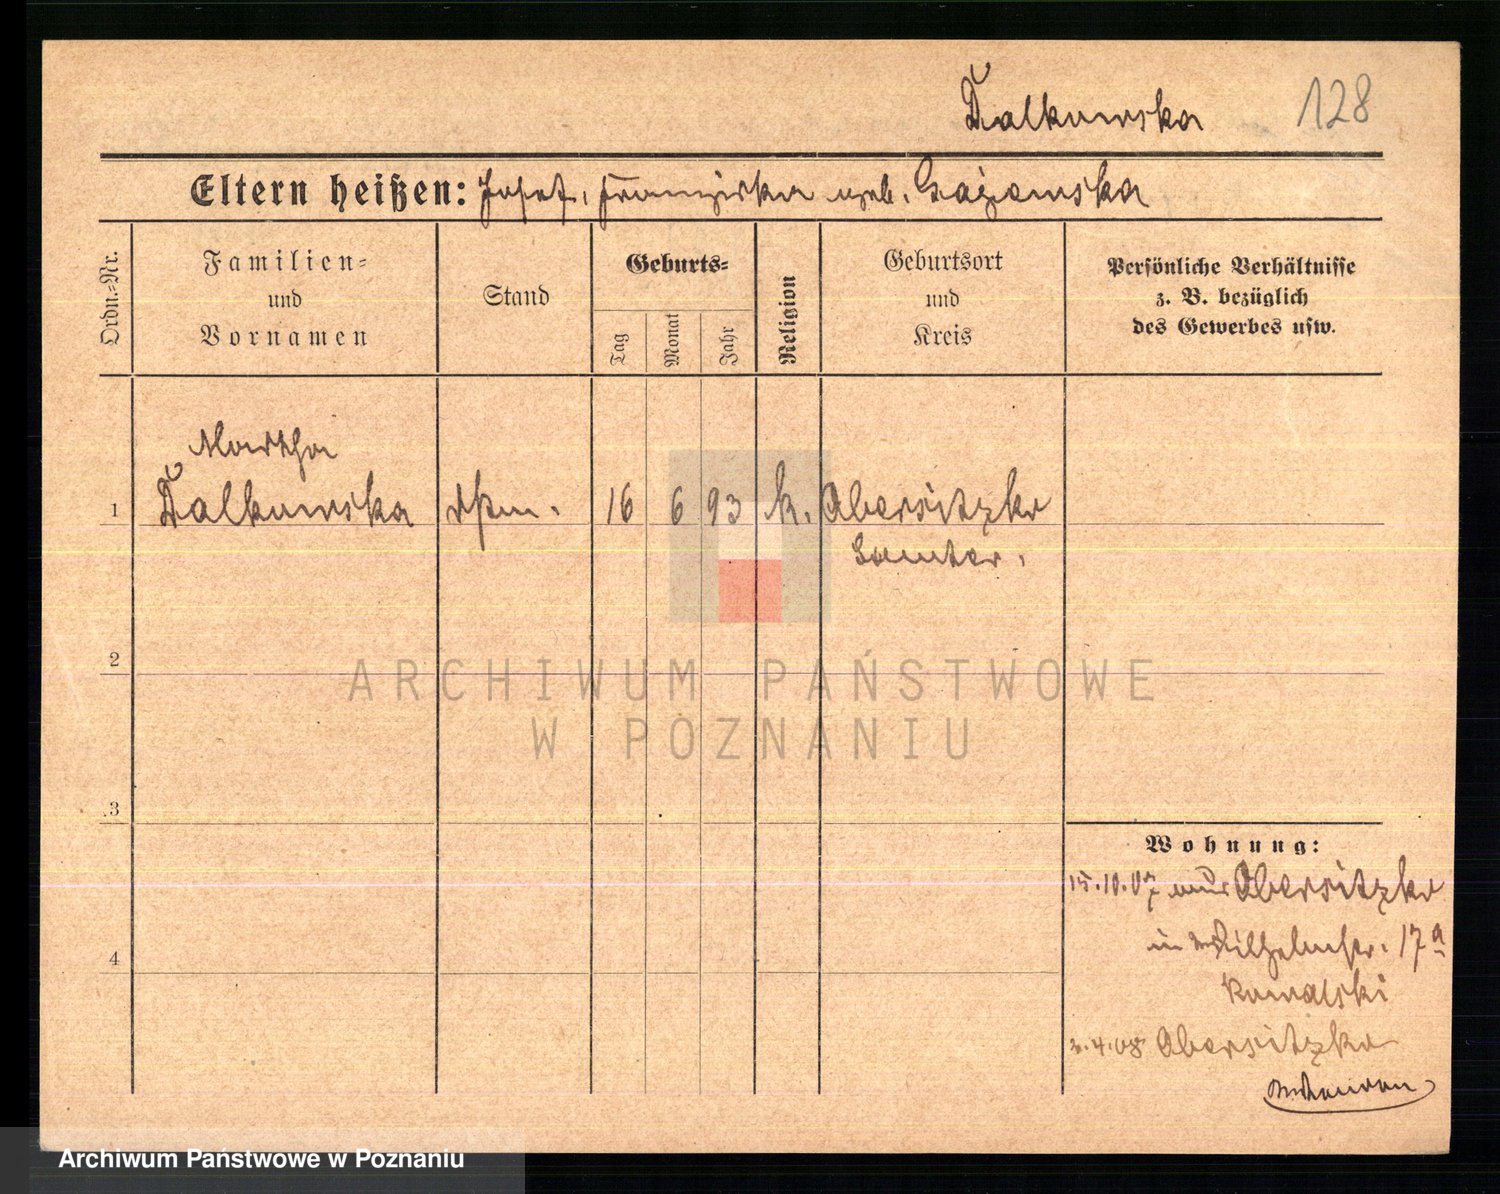 Dalkowska 128
Eltern heißen: Josef, Franziska geb. Gażowska
Ordn.-Nr.
Familien-
und
Vornamen
Stand
Geburts-
Tag
Monat
Jahr
Religion
Geburtsort
und
Kreis
Persönliche Verhältnisse
z. B. bezüglich
des Gewerbes usw.
Martha
1 Dalkowska 16 6 93 k. Obersitzko
Samter.
2
3
4
Wohnung:
15.10.07 aus Obersitzko
in Wilhelmstr. 17a
Kowalski
2.4.08 Obersitzko
ARCHIWUM PAŃSTWOWE
W POZNANIU
Archiwum Państwowe w Poznaniu